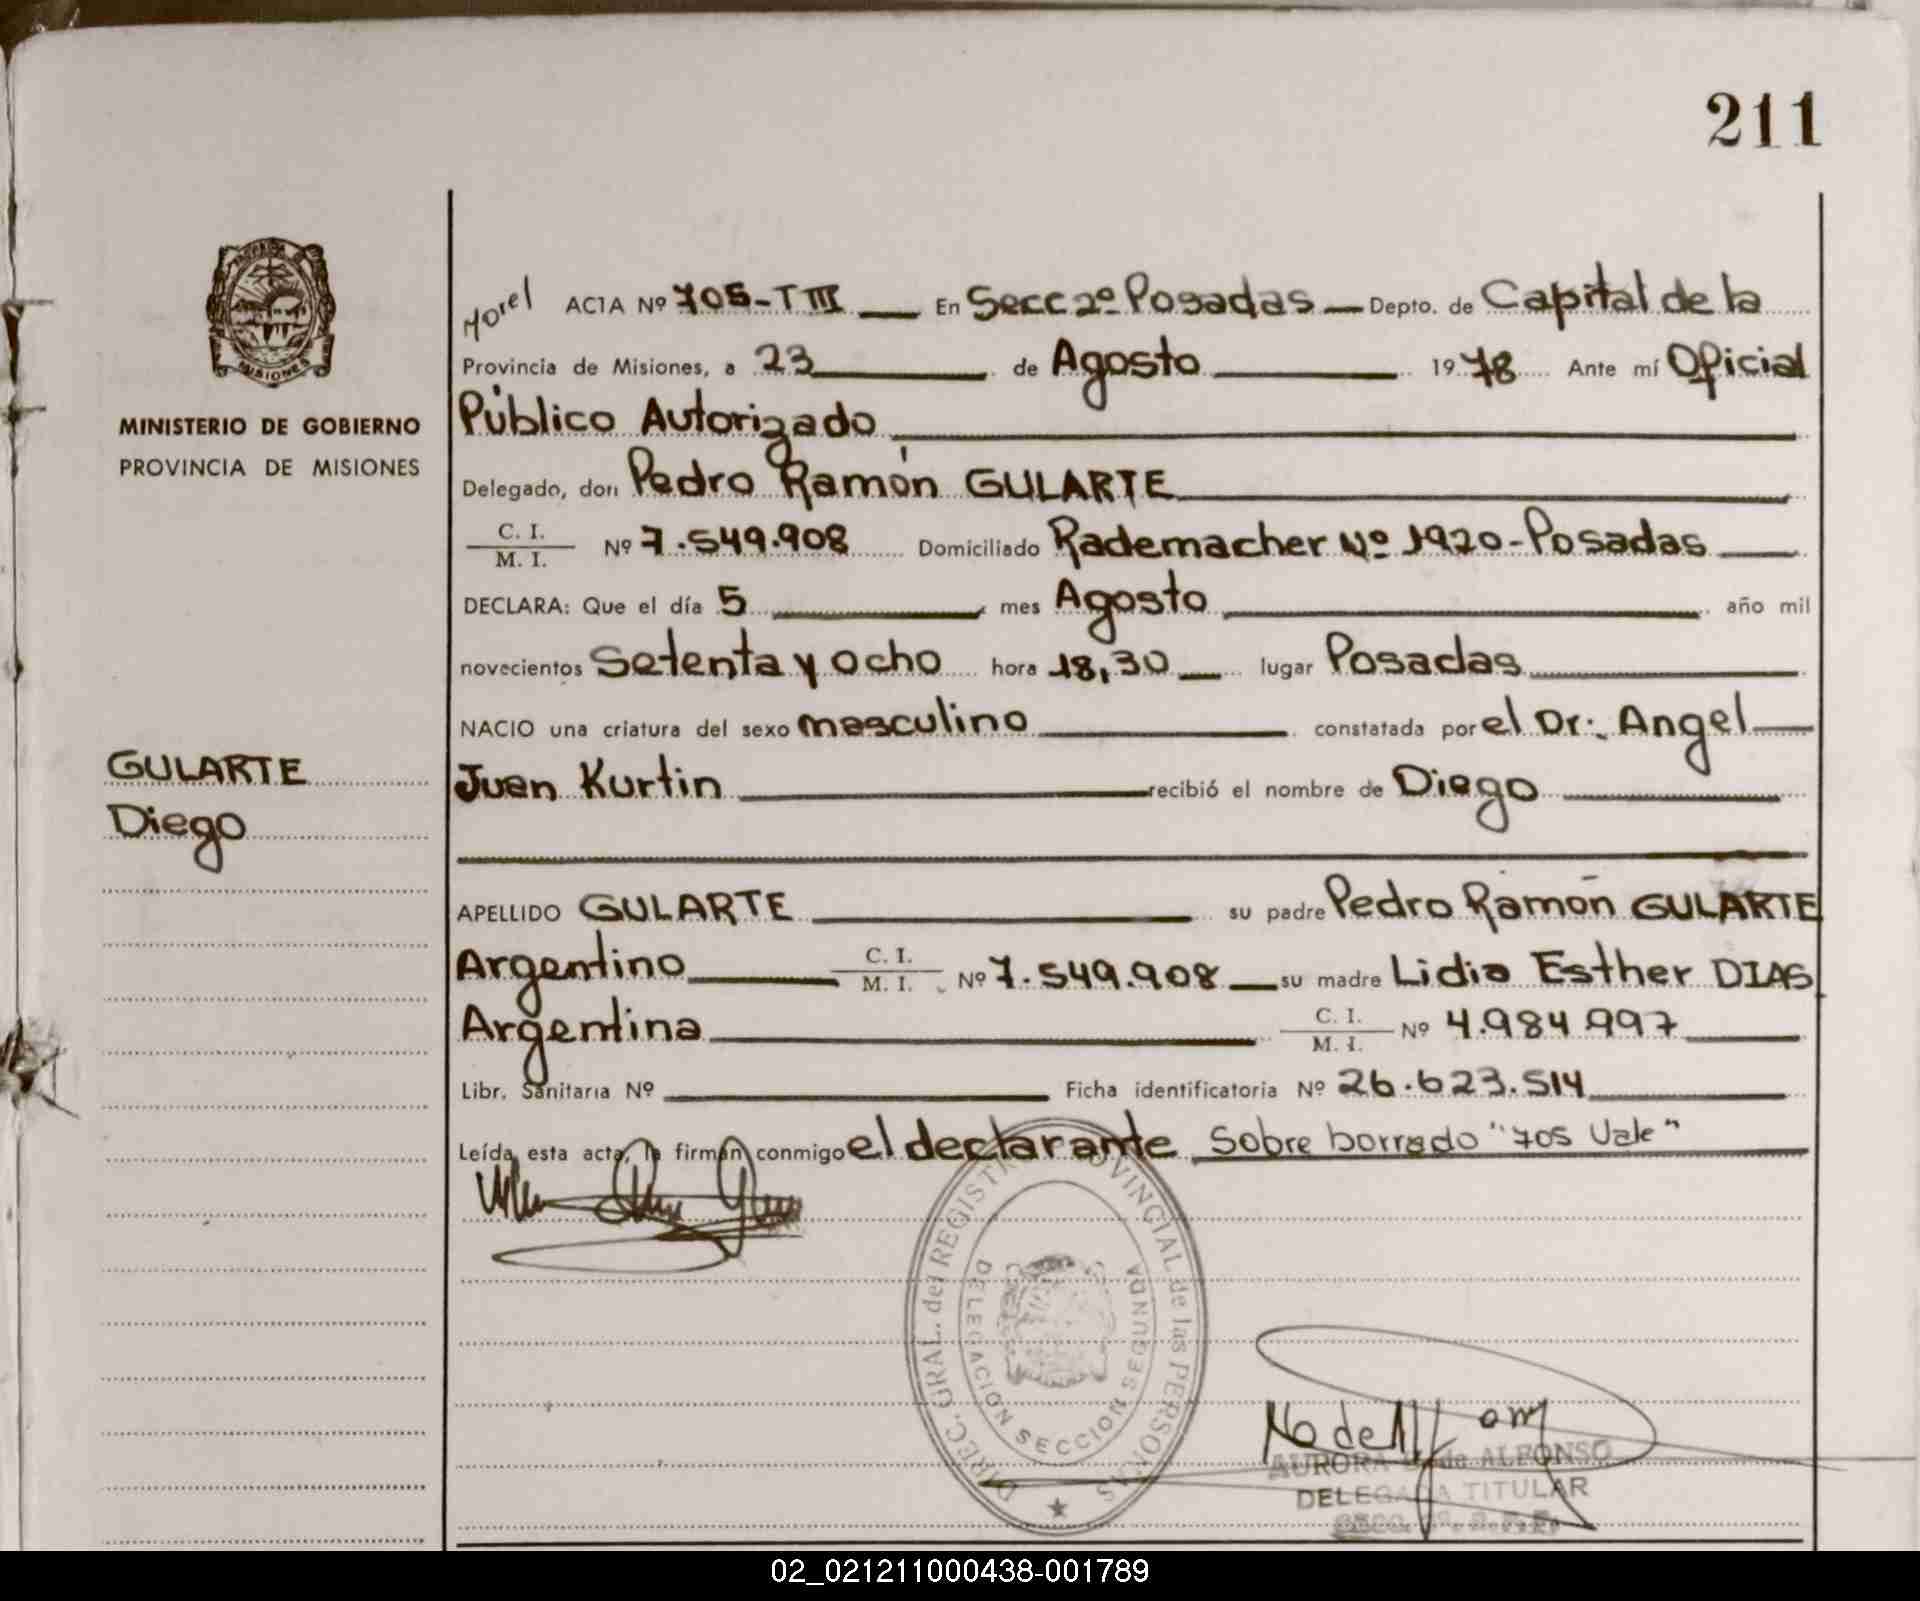 211
PROVINCIA
MISIONES
MINISTERIO DE GOBIERNO
PROVINCIA DE MISIONES
GULARTE
Diego
Morel ACTA Nº 705-TIII En Secc 2º Posadas - Depto. de Capital de la
Provincia de Misiones, a 23 de Agosto 1978 Ante mí Oficial
Público Autorizado
Delegado, don Pedro Ramón GULARTE
C. I.
M. I. Nº 7.549.908 Domiciliado Rademacher Nº 1920-Posadas
DECLARA: Que el día 5 mes Agosto año mil
novecientos Setenta y ocho hora 18,30 lugar Posadas
NACIO una criatura del sexo masculino constatada por el Dr. Angel
Juan Kurtin recibió el nombre de Diego
APELLIDO GULARTE su padre Pedro Ramón GULARTE
Argentino C. I. M. I. Nº 7.549.908 su madre Lidia Esther DIAS
Argentina C. I. M. I. Nº 4.984.997
Libr. Sanitaria Nº Ficha identificatoria Nº 26.623.514
Leída esta acta, la firman conmigo el declarante Sobre borrado "705 Vale"
DIREC. GRAL. del REGISTRO PROVINCIAL de las PERSONAS
DELEGACION SECCION SEGUNDA
AURORA de ALFONSO
DELEGADA TITULAR
02_021211000438-001789